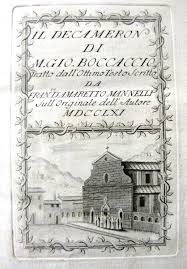 IL DECAMERON
DI
M. GIO. BOCCACCIO
Tratto dall'Ottimo Testo Scritto
DA
FRAN.co D'AMARETTO MANNELLI
Sull'Originale dell'Autore
MDCCLXI